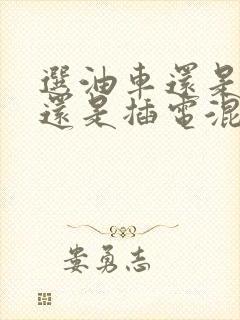 選油車還是
還是插電混
娄勇志